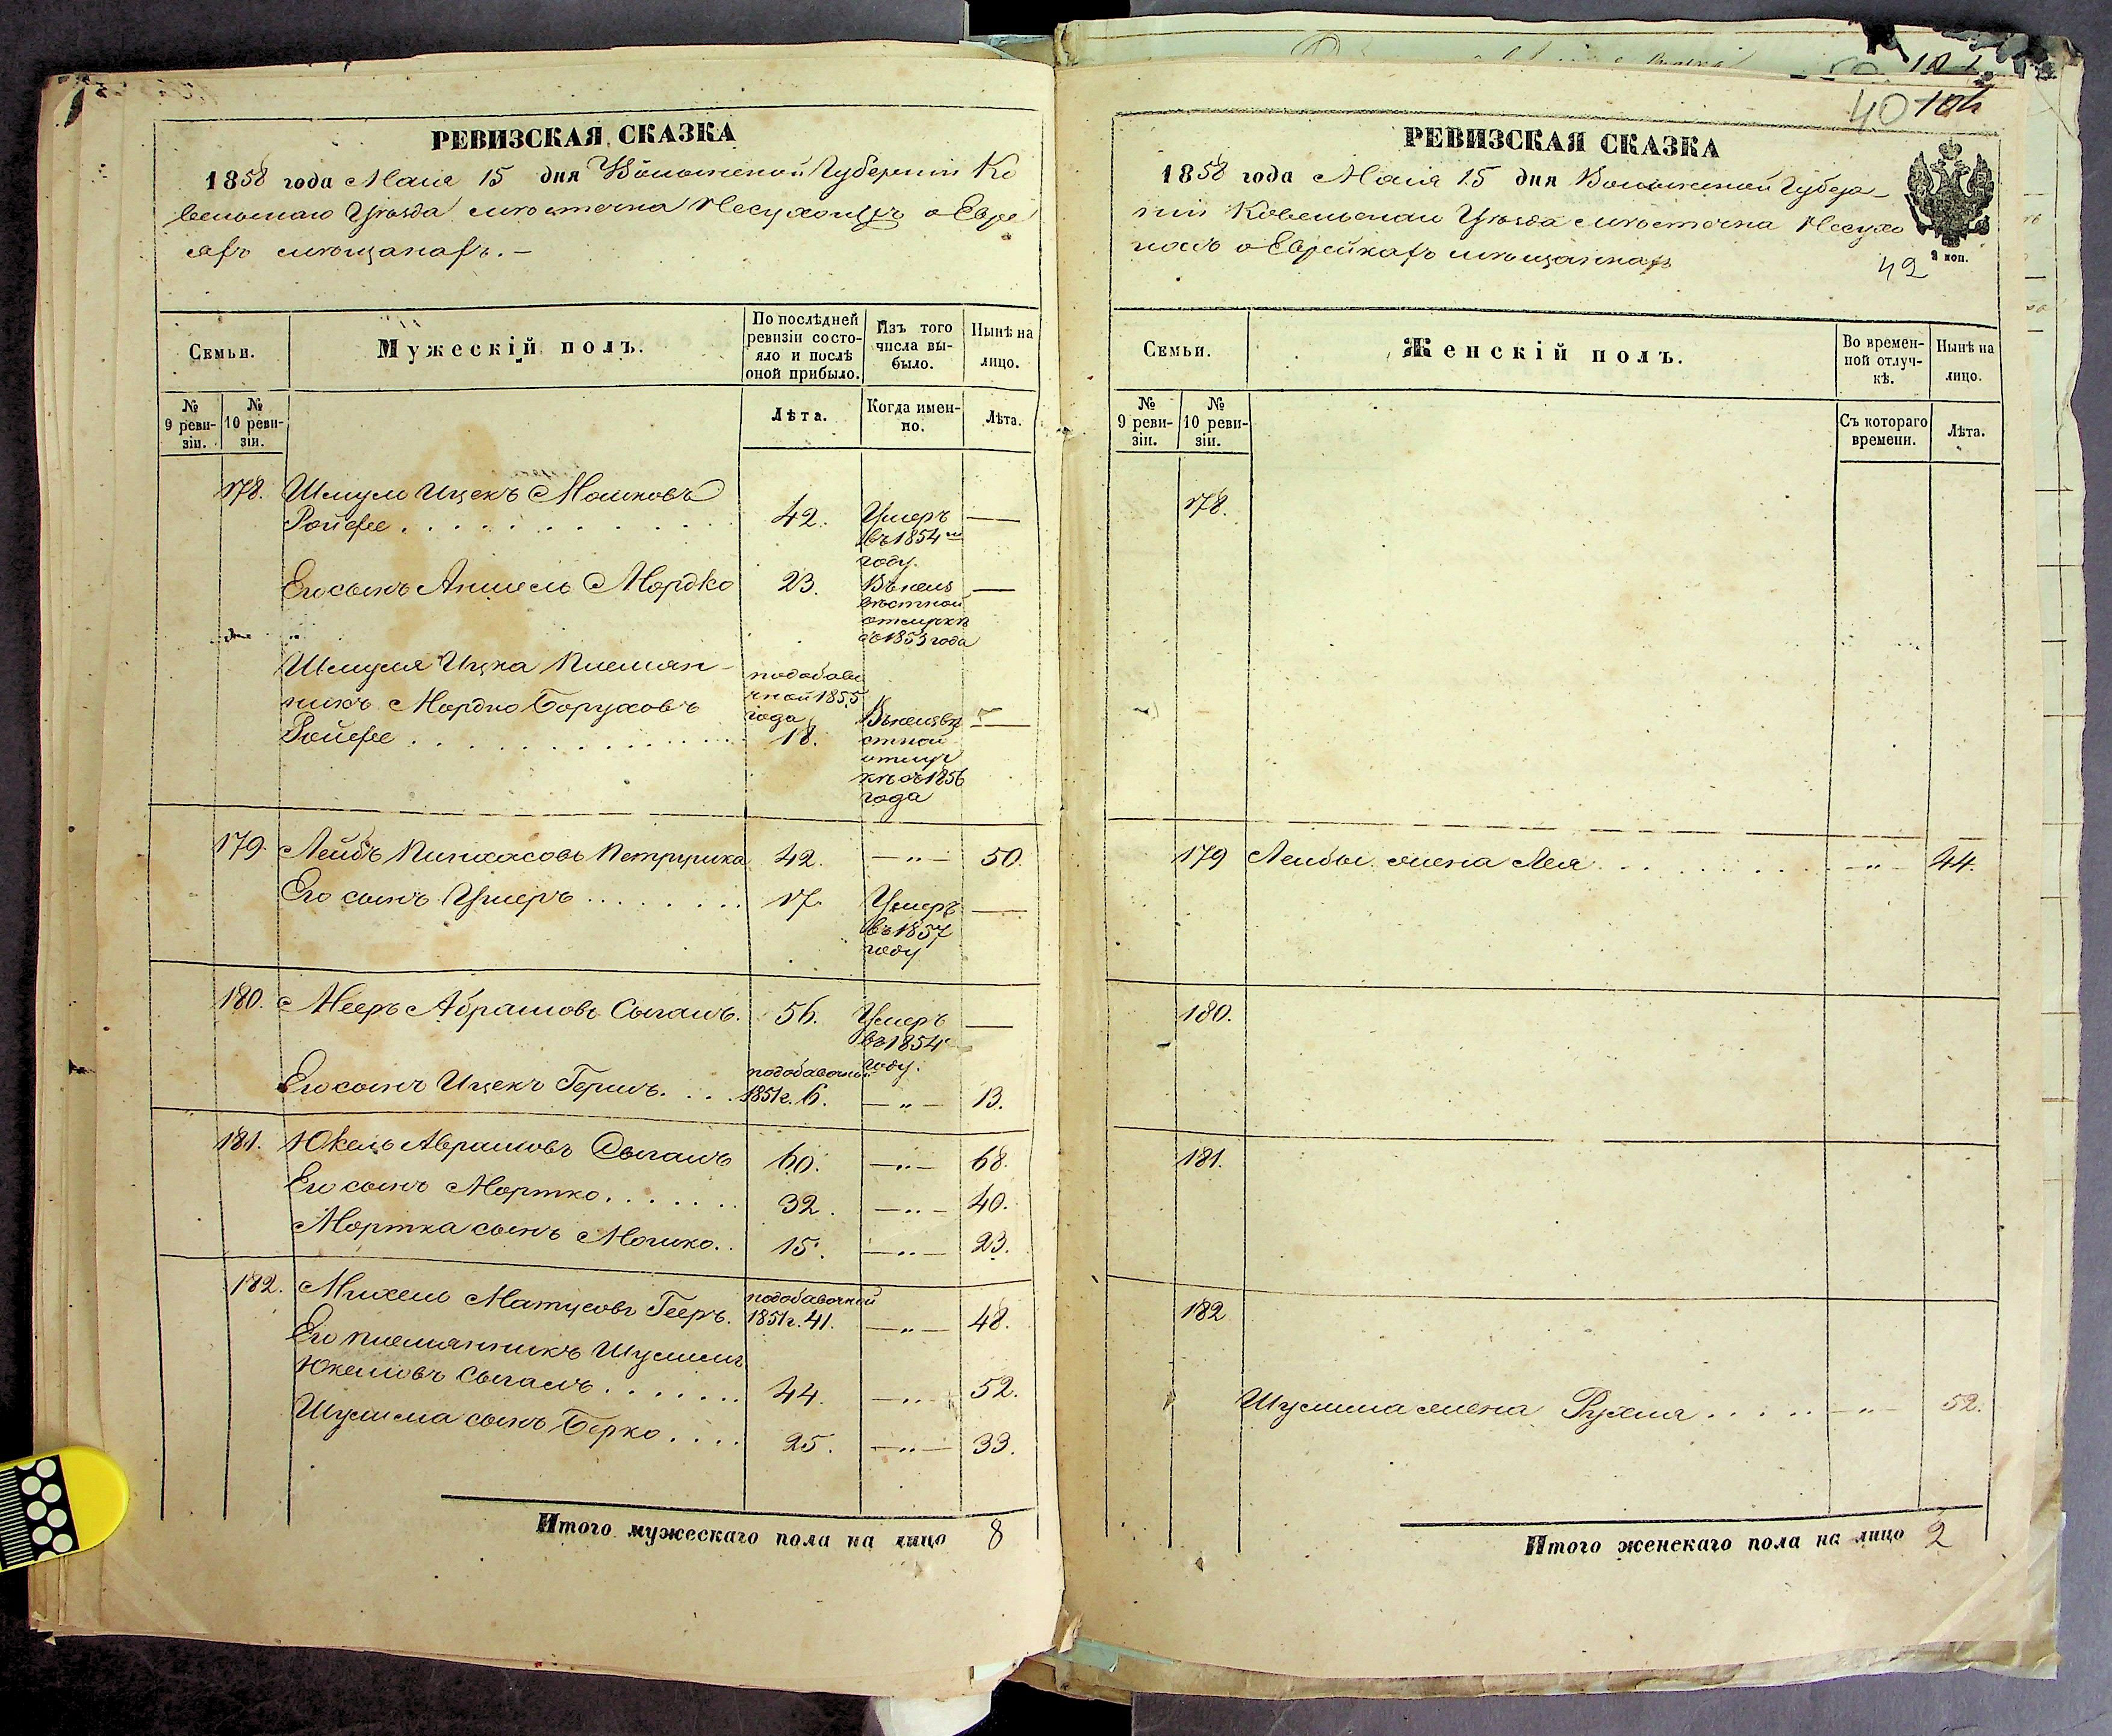 РЕВИЗСКАЯ СКАЗКА
1858 года Маiя 15 дня Волынской Губернiи Ко
вельскаго Уѣзда мѣстечка Несухоижъ о Евре
яхъ мѣщанахъ. –
Семьи.
Мужескій полъ.
По послѣдней ревизіи состояло и послѣ оной прибыло.
Изъ того числа выбыло.
Нынѣ на лицо.
№ 9 ревизіи.
№ 10 ревизіи.
Лѣта.
Когда именно.
Лѣта.
178. Шмуль Ицекъ Мошковъ
Ройфе 42. Умеръ въ 1854 м году. —
Его сынъ Аншель Мордко 23. Въ неизвѣстной отлучкѣ съ 1853 года —
Шмуля Ицка племян-
никъ Мордко Боруховъ
Ройфе подобавочной 1855 года 18. Въ неизвѣстной отлучкѣ съ 1856 года —
179. Лейбъ Пинхасовъ Петрушка 42. —„— 50.
Его сынъ Ушеръ 17. Умеръ въ 1857 году —
180. Мееръ Абрамовъ Сыгалъ. 56. Умеръ въ 1854 году. —
Его сынъ Ицекъ Гершъ. подобавочной 1851 г. 6. —„— 13.
181. Юкель Аврамовъ Сыгалъ 60. —„— 68.
Его сынъ Мортко 32. —„— 40.
Мортка сынъ Мошко. 15. —„— 23.
182. Михель Матусовъ Гееръ. подобавочной 1851 г. 41. —„— 48.
Его племянникъ Шулимъ
Юкелювъ Сыгалъ 44. —„— 52.
Шулима сынъ Берко 25. —„— 33.
Итого мужескаго пола на лицо 8
40 104
РЕВИЗСКАЯ СКАЗКА
1858 года Маiя 15 дня Волынской Губер-
нiи Ковельскаго Уѣзда мѣстечка Несухо
о Еврейкахъ мѣщанкахъ
3 коп.
42
Семьи.
Женскій полъ.
Во временной отлучкѣ.
Нынѣ на лицо.
№ 9 ревизіи.
№ 10 ревизіи.
Съ котораго времени.
Лѣта.
178.
179 Лейбы жена Лея —„— 44.
180.
181.
182
Шулима жена Рухля —„— 52.
Итого женскаго пола на лицо 2